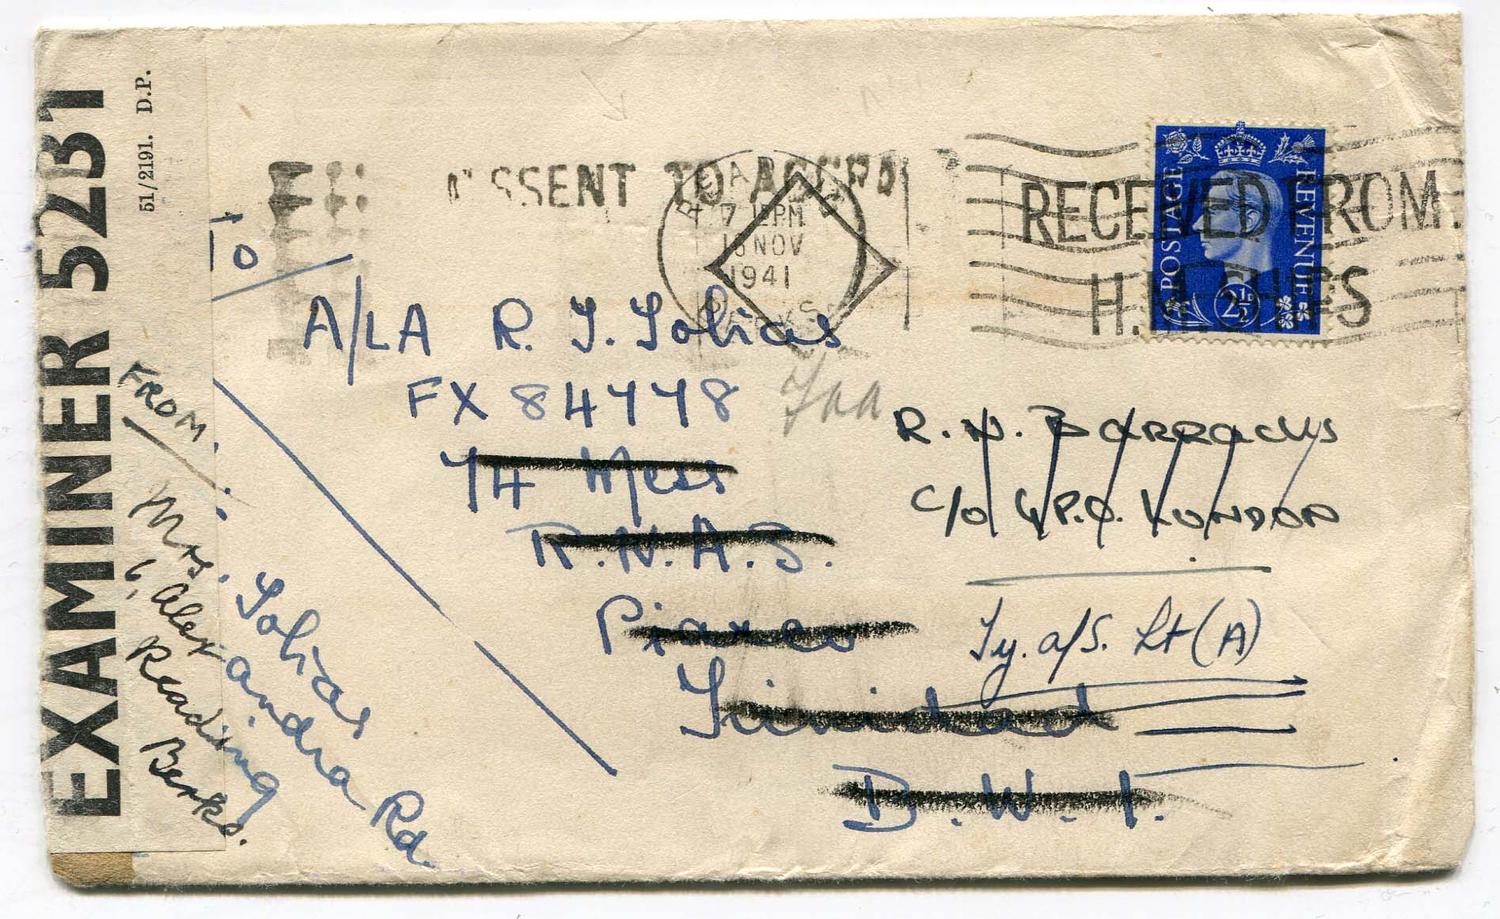 EXAMINER 5281
51/2191. D.P.
SENT TO
7 15 PM
NOV
1941
RECEIVED FROM
H.M. SHIPS
POSTAGE
REVENUE
2½D
To
A/LA R. J. Tobias
FX 84778
74 Mess
R.N.A.S.
Piarco
Trinidad
B.W.I.
R.N. Barracks
c/o G.P.O. London
Ty. a/S. Lt (A)
FROM
Mrs. Tobias
6, Alexandra Rd
Reading
Berks.